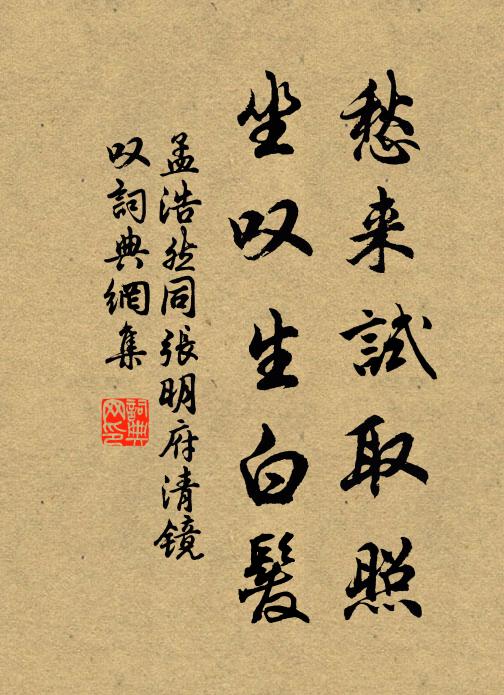 愁来試取照
坐叹生白髮
孟浩然同張明府清镜
叹詞典網集
詞典
网印